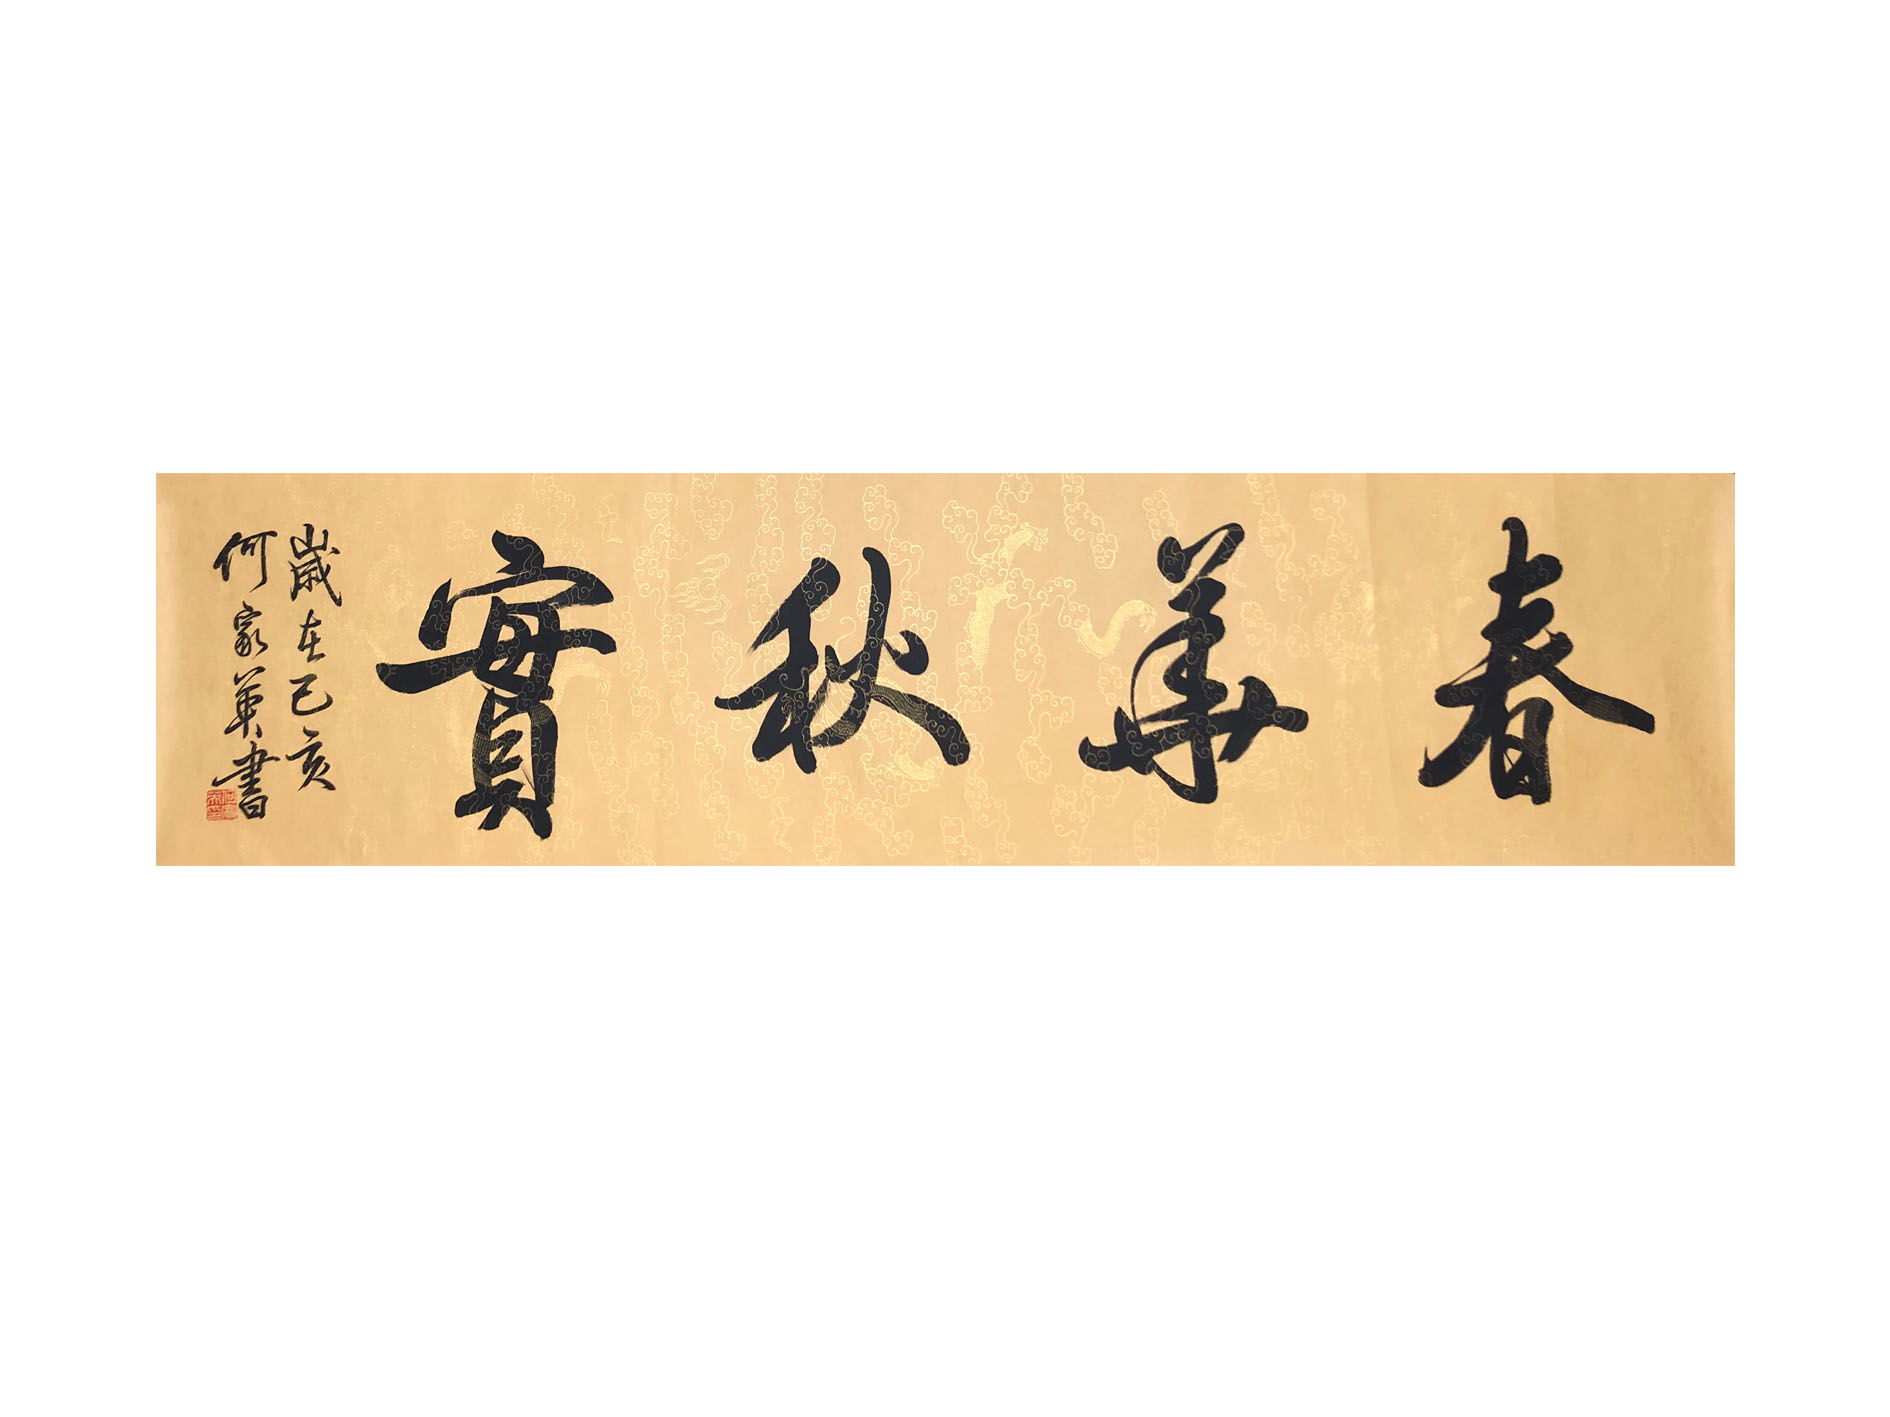 春華秋實
歲在己亥
何家英書